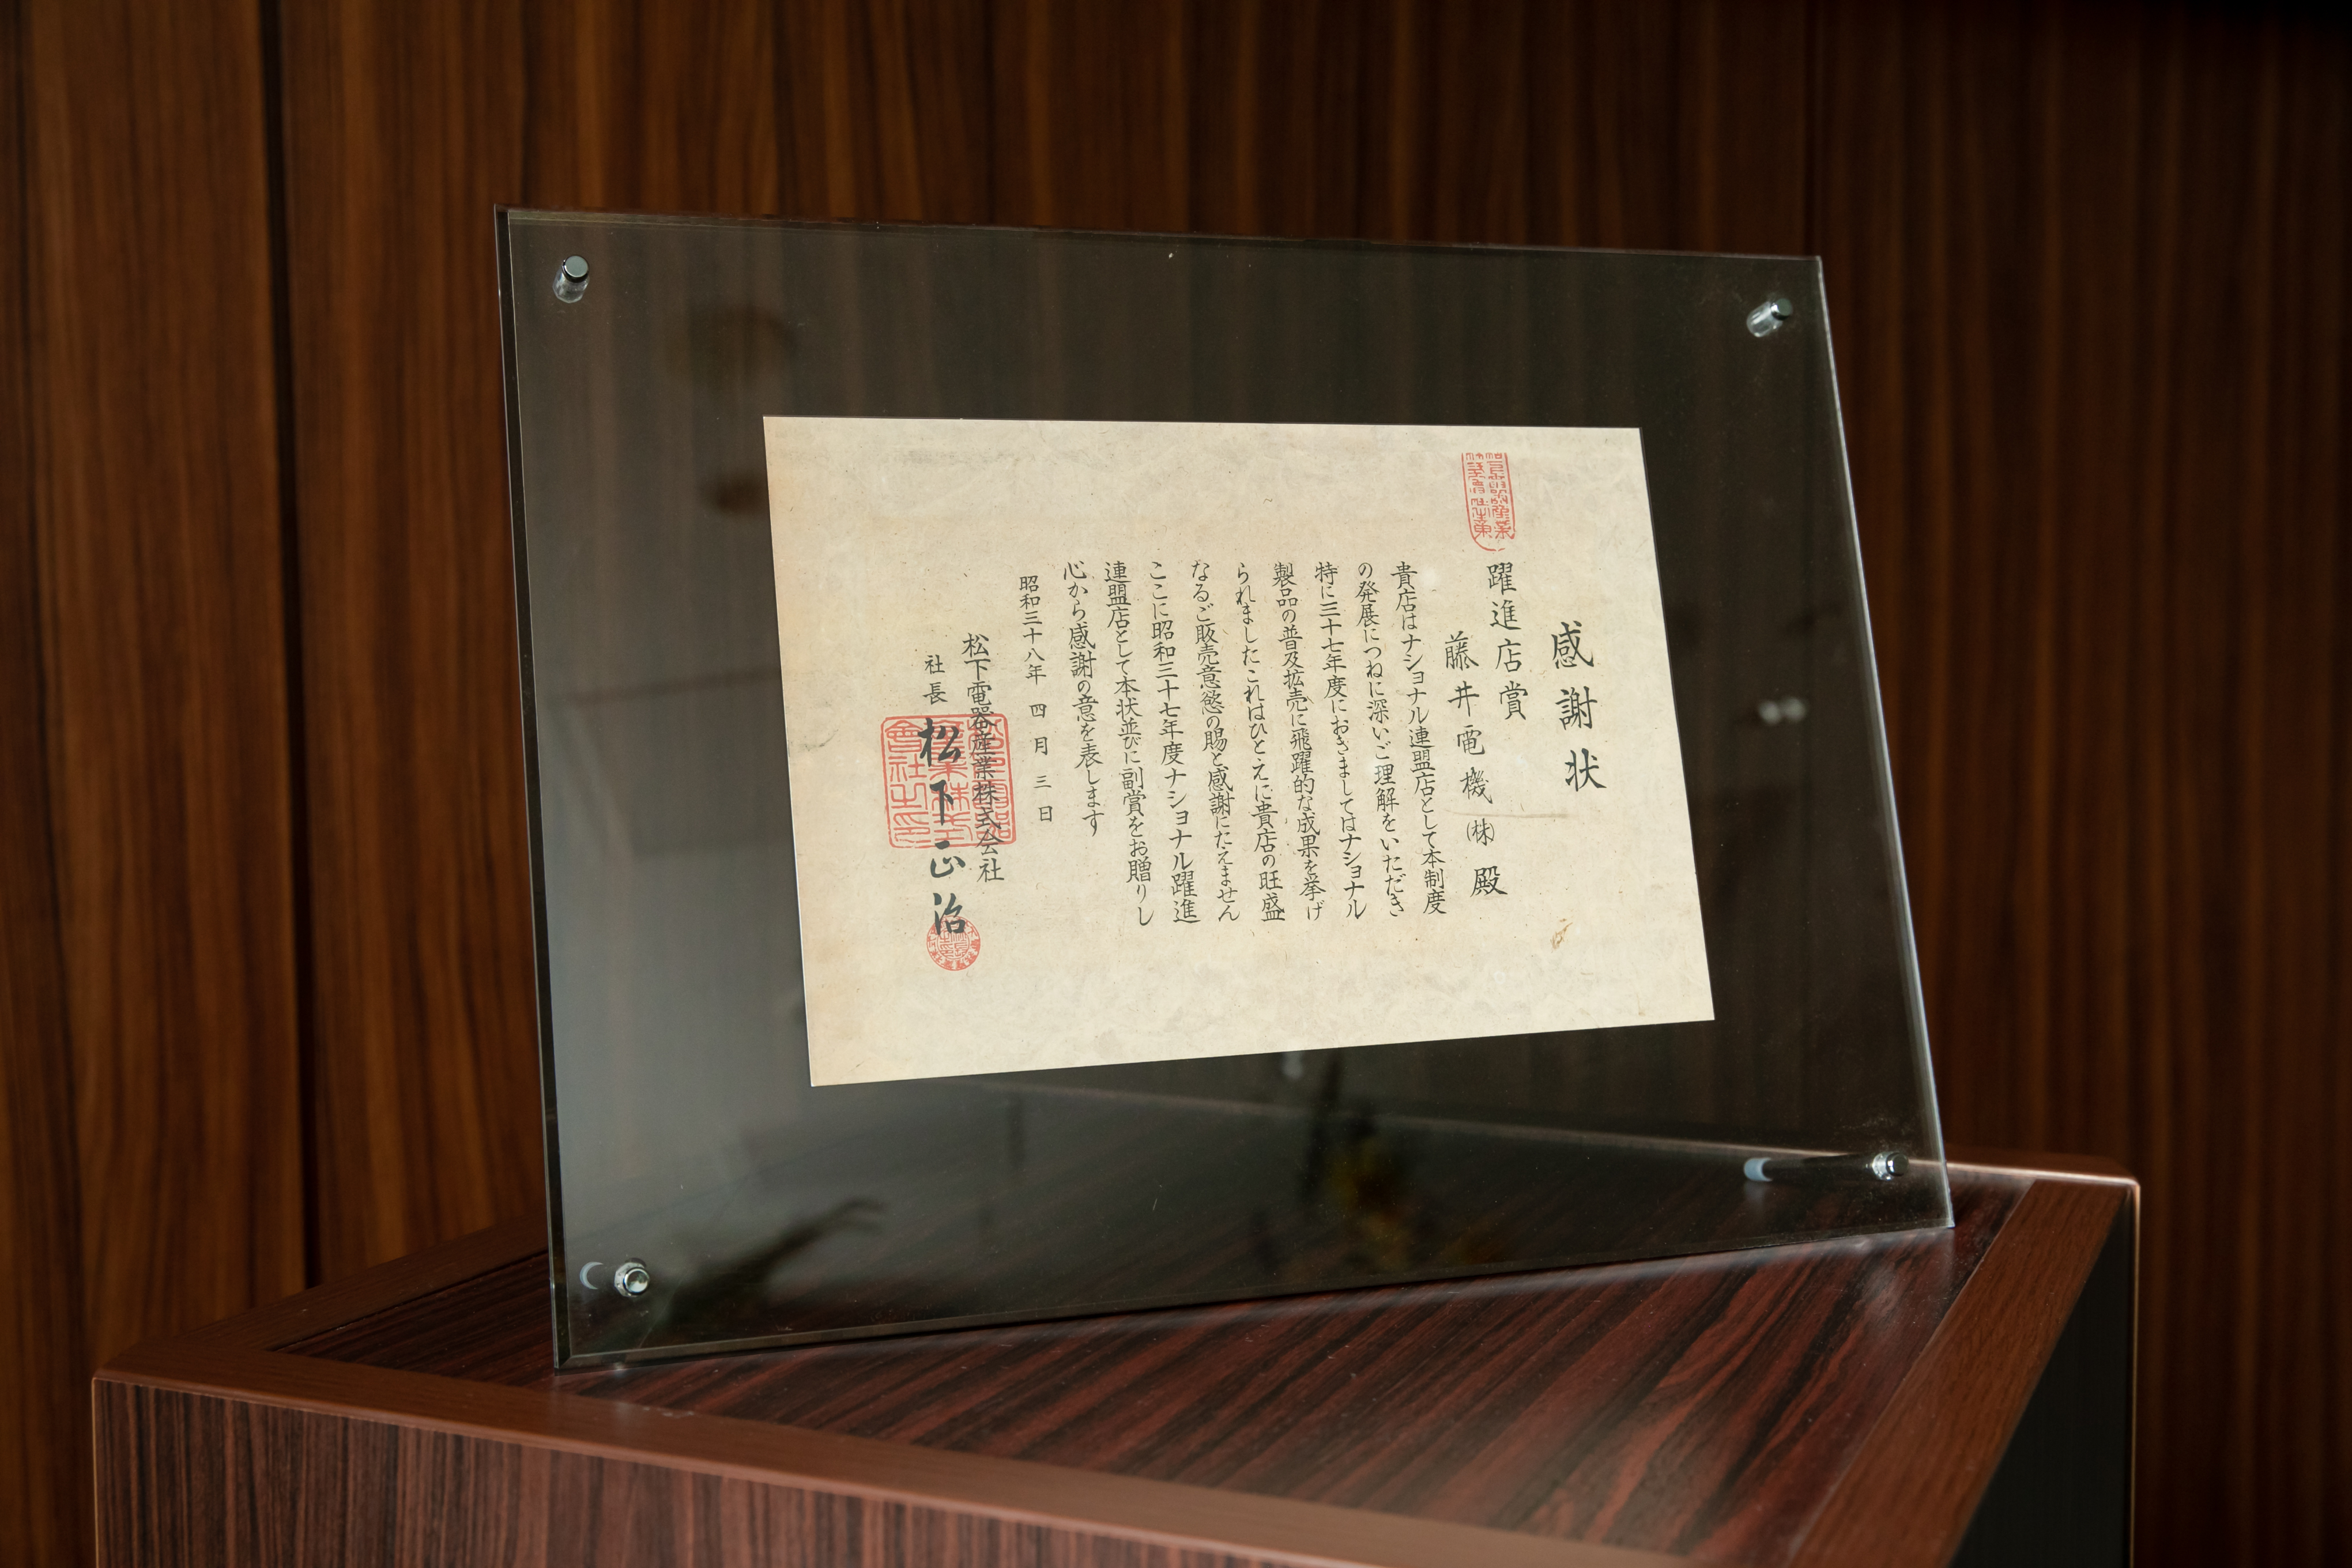 感謝状
躍進店賞
藤井電機㈱殿
貴店はナショナル連盟店として本制度
の発展につねに深いご理解をいただき
特に三十七年度におきましてはナショナル
製品の普及拡売に飛躍的な成果を挙げ
られましたこれはひとえに貴店の旺盛
なるご販売意慾の賜と感謝にたえません
ここに昭和三十七年度ナショナル躍進
連盟店として本状並びに副賞をお贈りし
心から感謝の意を表します
昭和三十八年四月三日
松下電器産業株式会社
社長 松下正治